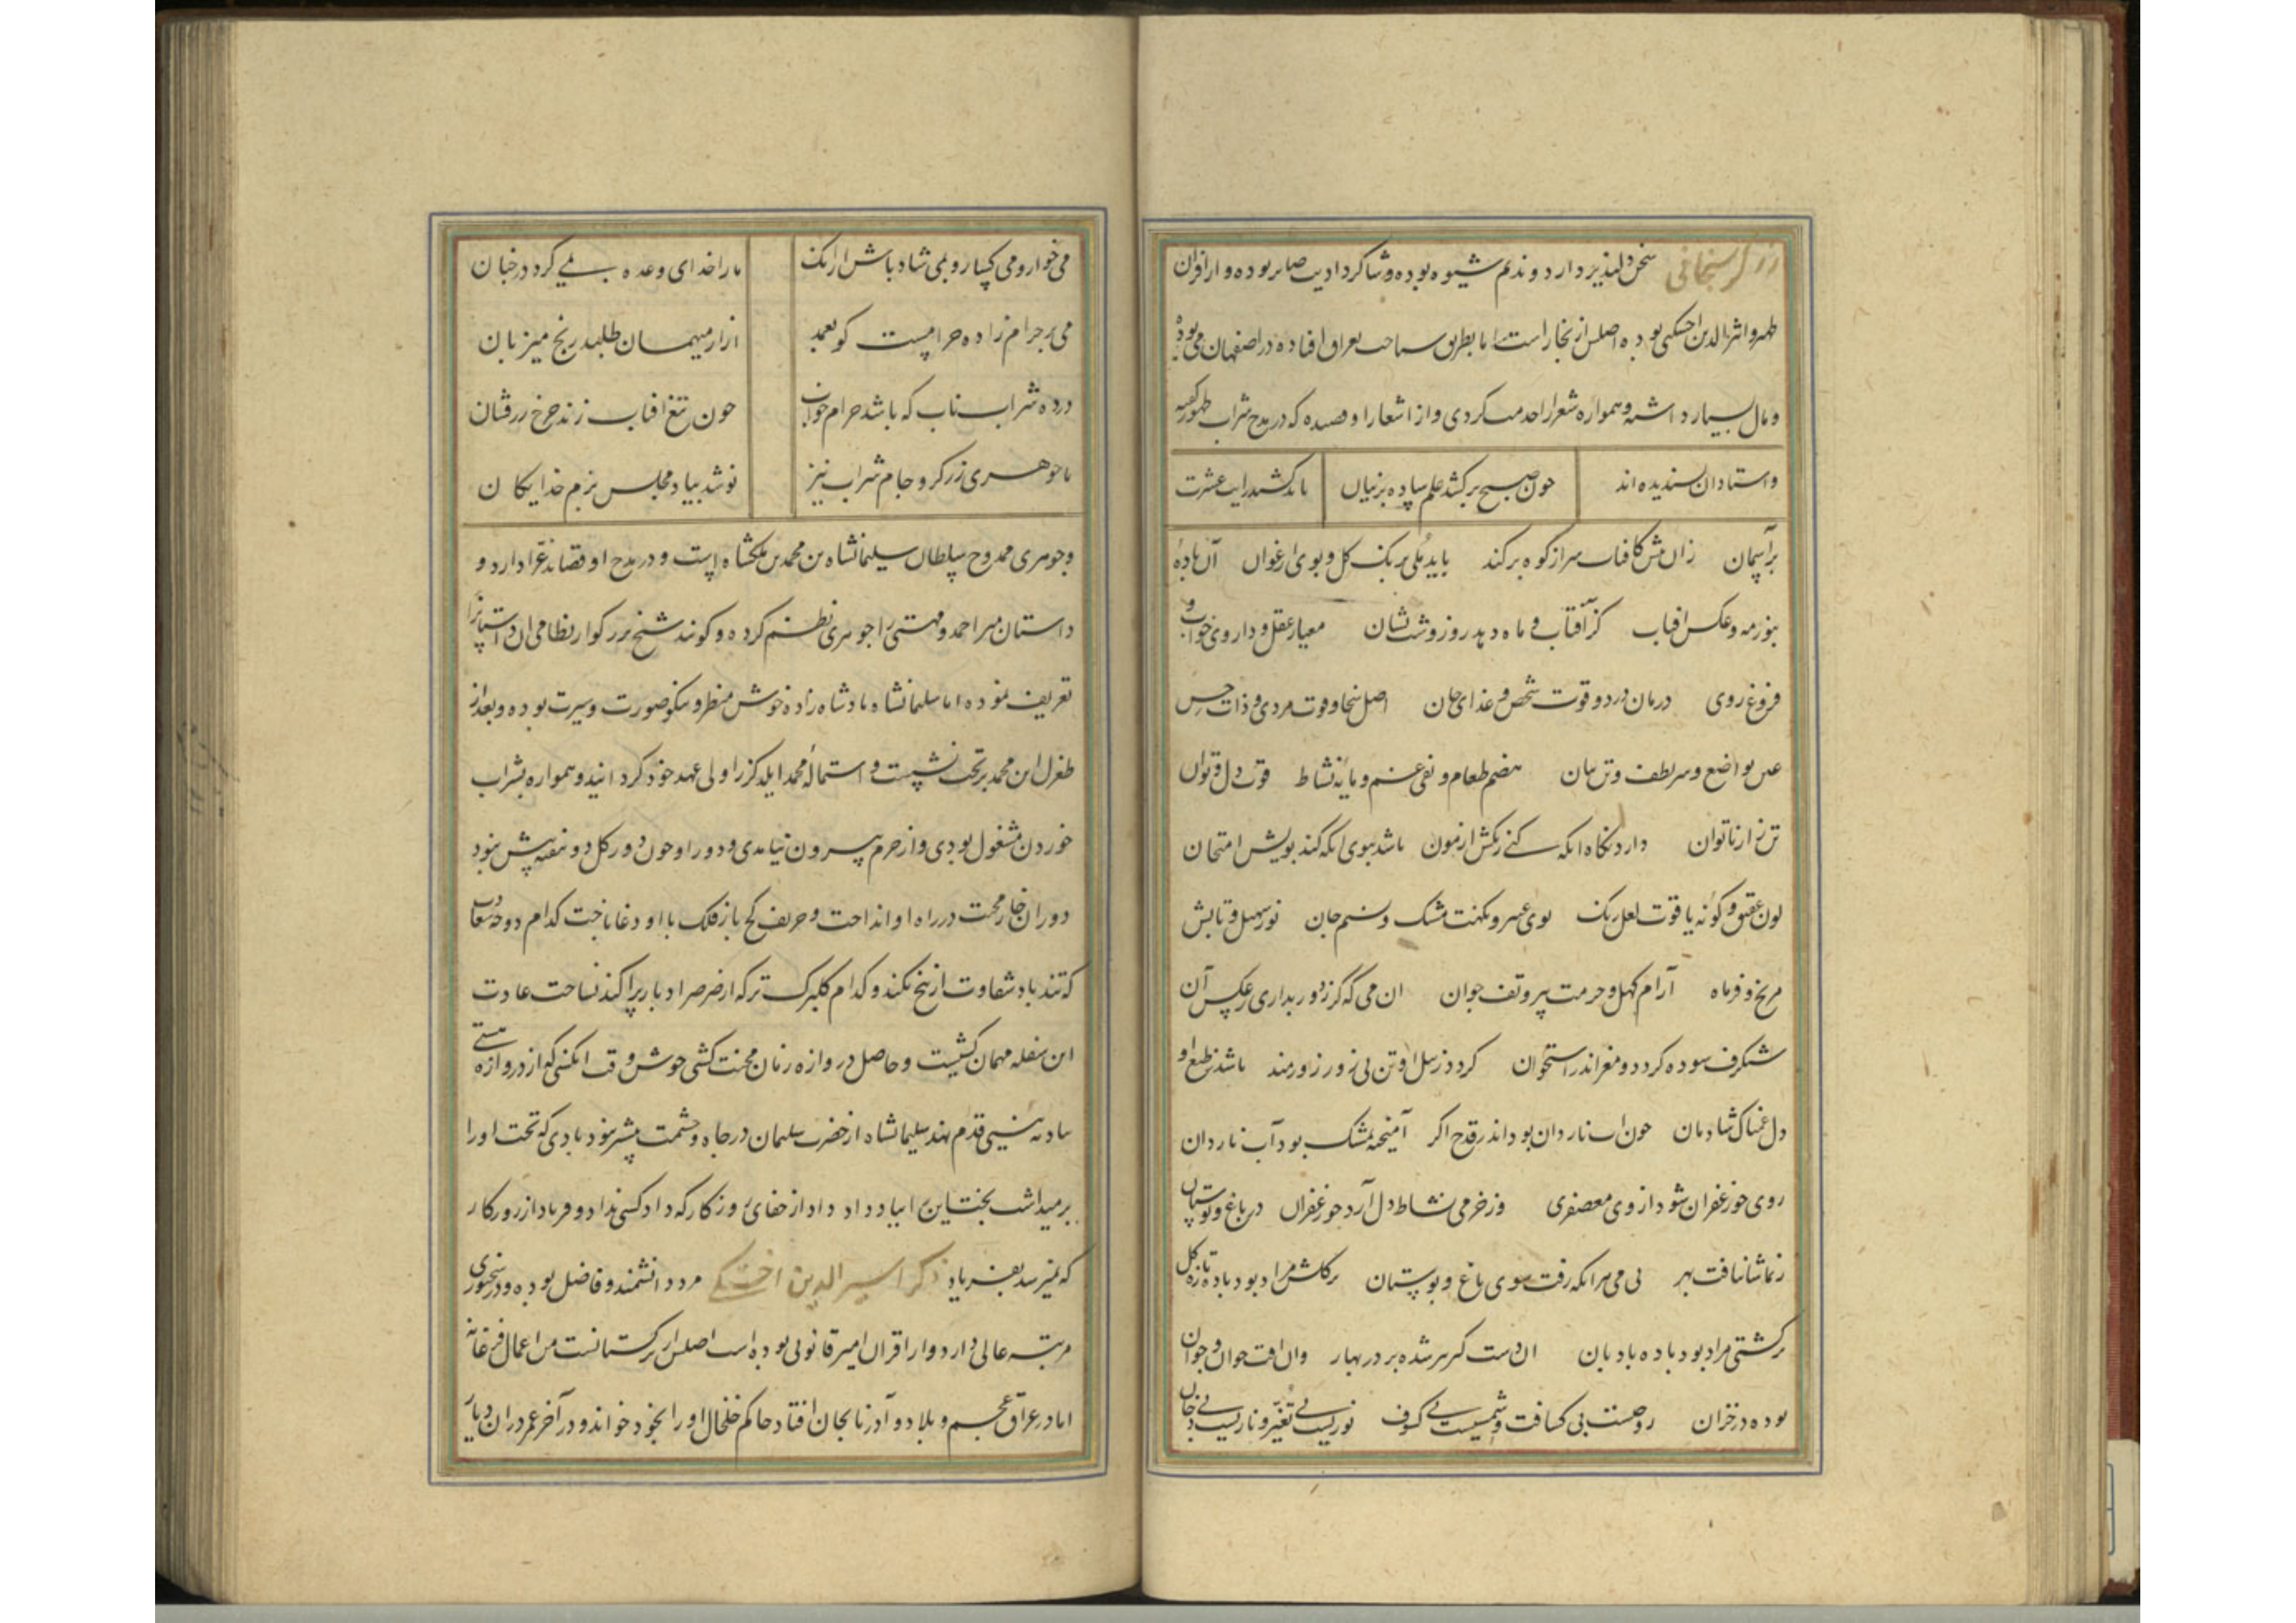 زرگر سنجانی سخن دلپذیر دارد و ندیم شیوه بوده و شاگرد ادیب صابر بوده و از اقران
ظهیر و اثیر الدین اخسیکتی بوده اصلش از بخاراست اما بطریق سیاحت بعراق افتاده در اصفهان می بوده
و مال بسیار داشته و همواره شعرا را خدمت کردی و از اشعار او قصیده که در مدح شراب بظهور
و استادان پسندیده اند چون صبح برکشد علم ساده پرنیان باید کشید رایت عشرت
بر آسمان زان پیش کافتاب سر از کوه برکند باید می برنگ گل و بوی ارغوان آن باده
بنور مه و عکس افتاب کز آفتاب و ماه دهد روز و شب نشان معیار عقل و داروی خواب و
فروغ روی درمان درد و قوت شخص و غذای جان اصل سخا و قوت مردی و ذات حس
عین تواضع و سر لطف و تن بیان هضم طعام و نفی غم و مایه نشاط قوت دل و توان
تن زار ناتوان دارد نگاه انکه کنی رنگش ازمون باشد ببوی انکه کند بویش امتحان
لون عقیق و گونه یاقوت لعل رنگ بوی عبیر و نکهت مشک و نسیم جان نور سهیل و تابش
مریخ و فر ماه آرام کهل و حرمت پیر و تف جوان ان می که گر ز دور بداری ز عکس آن
شنگرف سوده گردد و مغز اندر استخوان گردد ز تن بی زور زورمند باشد ز طبع او
دل غمناک شادمان چون اب ناردان بود اندر قدح اگر آمیخته بمشک بود آب ناردان
روی چو زعفران شود از وی معصفری وز خرمی نشاط دل آرد چو زعفران در باغ و بوستان
ز تماشا نیافت بهر بی می هر انکه رفت سوی باغ و بوستان بر گلش مراد بود باده تازه گل
بر کشتی مراد بود باده بادبان ان دست گیر پیر شده بر در بهار وان افت جوان و جوان
بوده در خزان روحست بی کسافت و شمسیست بی کسوف نوریست بی تغیر و ناریست بی دخان
می خوار و می گسار و بمی شاد باش ازانک ما را خدای وعده بمی کرد در جنان
می بر حرام زاده حرامست کو بعمد ازار میهمان طلبد رنج میزبان
درده شراب ناب که باشد حرام خواب چون تیغ افتاب زند چرخ زرفشان
با جوهری زرگر و جام شراب نیز نوشد بیاد مجلس بزم خدایگان
و جوهری ممدوح سلطان سلیمانشاه بن محمد بن ملکشاه است و در مدح او قصاید غرا دارد و
داستان میر احمد و مهستی را جوهری نظم کرده و گویند شیخ بزرگوار نظامی ان داستانرا
تعریف نموده اما سلیمانشاه پادشاه زاده خوش منظر و نیکو صورت و سیرت بوده و بعد از
طغرل ابن محمد بر تخت نشست و استماله محمد ایلدگز را ولی عهد خود گردانید و همواره بشراب
خوردن مشغول بودی و از حرم بیرون نیامدی و دور او چون دور گل دو هفته بیش نبود
دوران خار محنت در راه او انداخت و حریف کج باز فلک با او دغا باخت کدام دوحه
که تند باد شقاوت از بیخ نکند و کدام گلبرگ تر که از صرصر ادبار پراکنده نساخت عادت
این سفله مهمان کشیست و حاصل دروازه زنان محنت کشی خوش وقت انکسی که از دروازه
قدم نهد سلیمانشاه از حضرت سلیمان در جاه و حشمت بیشتر نبود بادی که تخت او را
بر میداشت بختش این را بباد داد داد از جفای روزگار که داد کسی نداد و فریاد از روزگار
که نمیرسد بفریاد ذکر اسیر الدین اخسیکتی مرد دانشمند و فاضل بوده و در سخنوری
مرتبه عالی دارد و از اقران امیر قانونی بوده است اصلش از ترکستانست من اعمال فرغانه
اما در عراق عجم و بلاد و آذربایجان افتاد حاکم خلخال او را بخود خواند و در آخر عمر در ان دیار